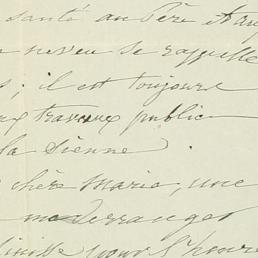 santé au Père et au
neveu se rappelle
; il est toujours
travaux public
la sienne.
chère Marie, une
me derranger
pour l'heure